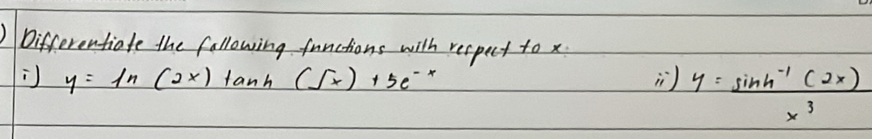 ) Differentiate the following functions with respect to x.
i) y = ln (2x) tanh (√x) + 5e^-x ii) y = sinh^-1 (2x) / x^3